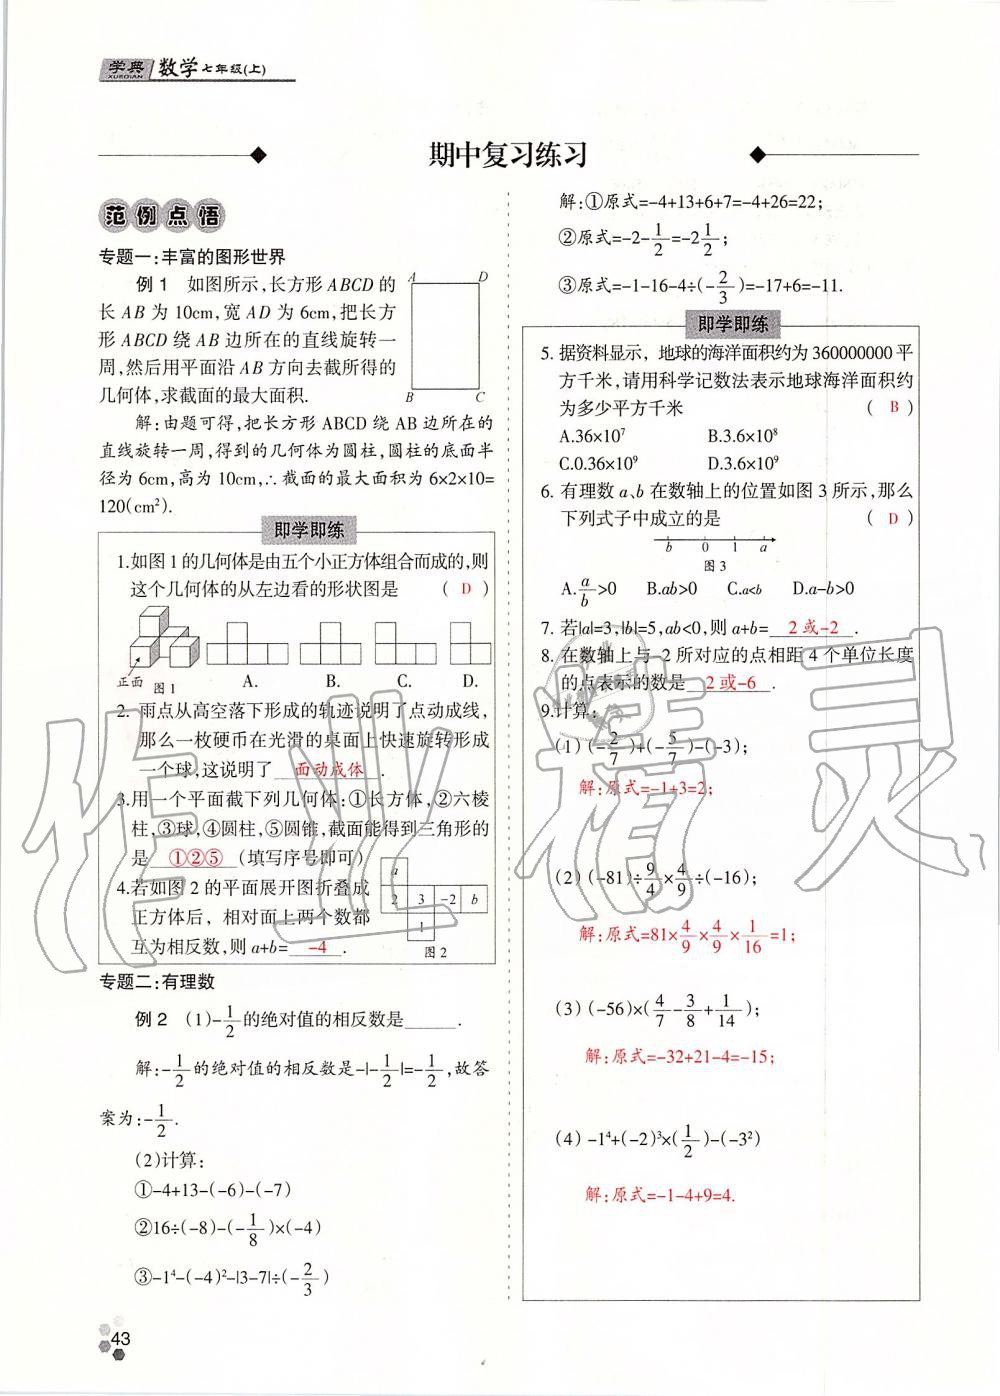 学典 数学 七年级(上)
XUEDIAN
期中复习练习
范例点悟
专题一:丰富的图形世界
例 1 如图所示,长方形 ABCD 的
长 AB 为 10cm,宽 AD 为 6cm,把长方
形 ABCD 绕 AB 边所在的直线旋转一
周,然后用平面沿 AB 方向去截所得的
几何体,求截面的最大面积.
A D
B C
解:由题可得,把长方形 ABCD 绕 AB 边所在的
直线旋转一周,得到的几何体为圆柱,圆柱的底面半
径为 6cm,高为 10cm,∴截面的最大面积为 6×2×10=
120(cm²).
即学即练
1.如图 1 的几何体是由五个小正方体组合而成的,则
这个几何体的从左边看的形状图是 ( D )
正面 图 1 A. B. C. D.
2. 雨点从高空落下形成的轨迹说明了点动成线,
那么一枚硬币在光滑的桌面上快速旋转形成
一个球,这说明了 面动成体 .
3.用一个平面截下列几何体:①长方体,②六棱
柱,③球,④圆柱,⑤圆锥,截面能得到三角形的
是 ①②⑤ (填写序号即可)
4.若如图 2 的平面展开图折叠成
正方体后，相对面上两个数都
互为相反数,则 a+b= -4 .
a
2 3 -2 b
1
图 2
专题二:有理数
例 2 (1)-1/2的绝对值的相反数是______.
解:-1/2的绝对值的相反数是-|-1/2|=-1/2,故答
案为:-1/2.
(2)计算:
①-4+13-(-6)-(-7)
②16÷(-8)-(-1/8)×(-4)
③-1⁴-(-4)²-|3-7|÷(-2/3)
解:①原式=-4+13+6+7=-4+26=22;
②原式=-2-1/2=-2 1/2;
③原式=-1-16-4÷(-2/3)=-17+6=-11.
即学即练
5. 据资料显示，地球的海洋面积约为 360000000 平
方千米,请用科学记数法表示地球海洋面积约
为多少平方千米 ( B )
A.36×10⁷ B.3.6×10⁸
C.0.36×10⁹ D.3.6×10⁹
6. 有理数 a、b 在数轴上的位置如图 3 所示,那么
下列式子中成立的是 ( D )
b 0 1 a
图 3
A.a/b>0 B.ab>0 C.a<b D.a-b>0
7. 若|a|=3,|b|=5,ab<0,则 a+b= 2 或-2 .
8. 在数轴上与-2 所对应的点相距 4 个单位长度
的点表示的数是 2 或-6 .
9.计算:
(1)(-2/7)+(-5/7)-(-3);
解:原式=-1+3=2;
(2)(-81)÷9/4×4/9÷(-16);
解:原式=81×4/9×4/9×1/16=1;
(3)(-56)×(4/7-3/8+1/14);
解:原式=-32+21-4=-15;
(4)-1⁴+(-2)³×(1/2)-(-3²)
解:原式=-1-4+9=4.
43
作业精灵